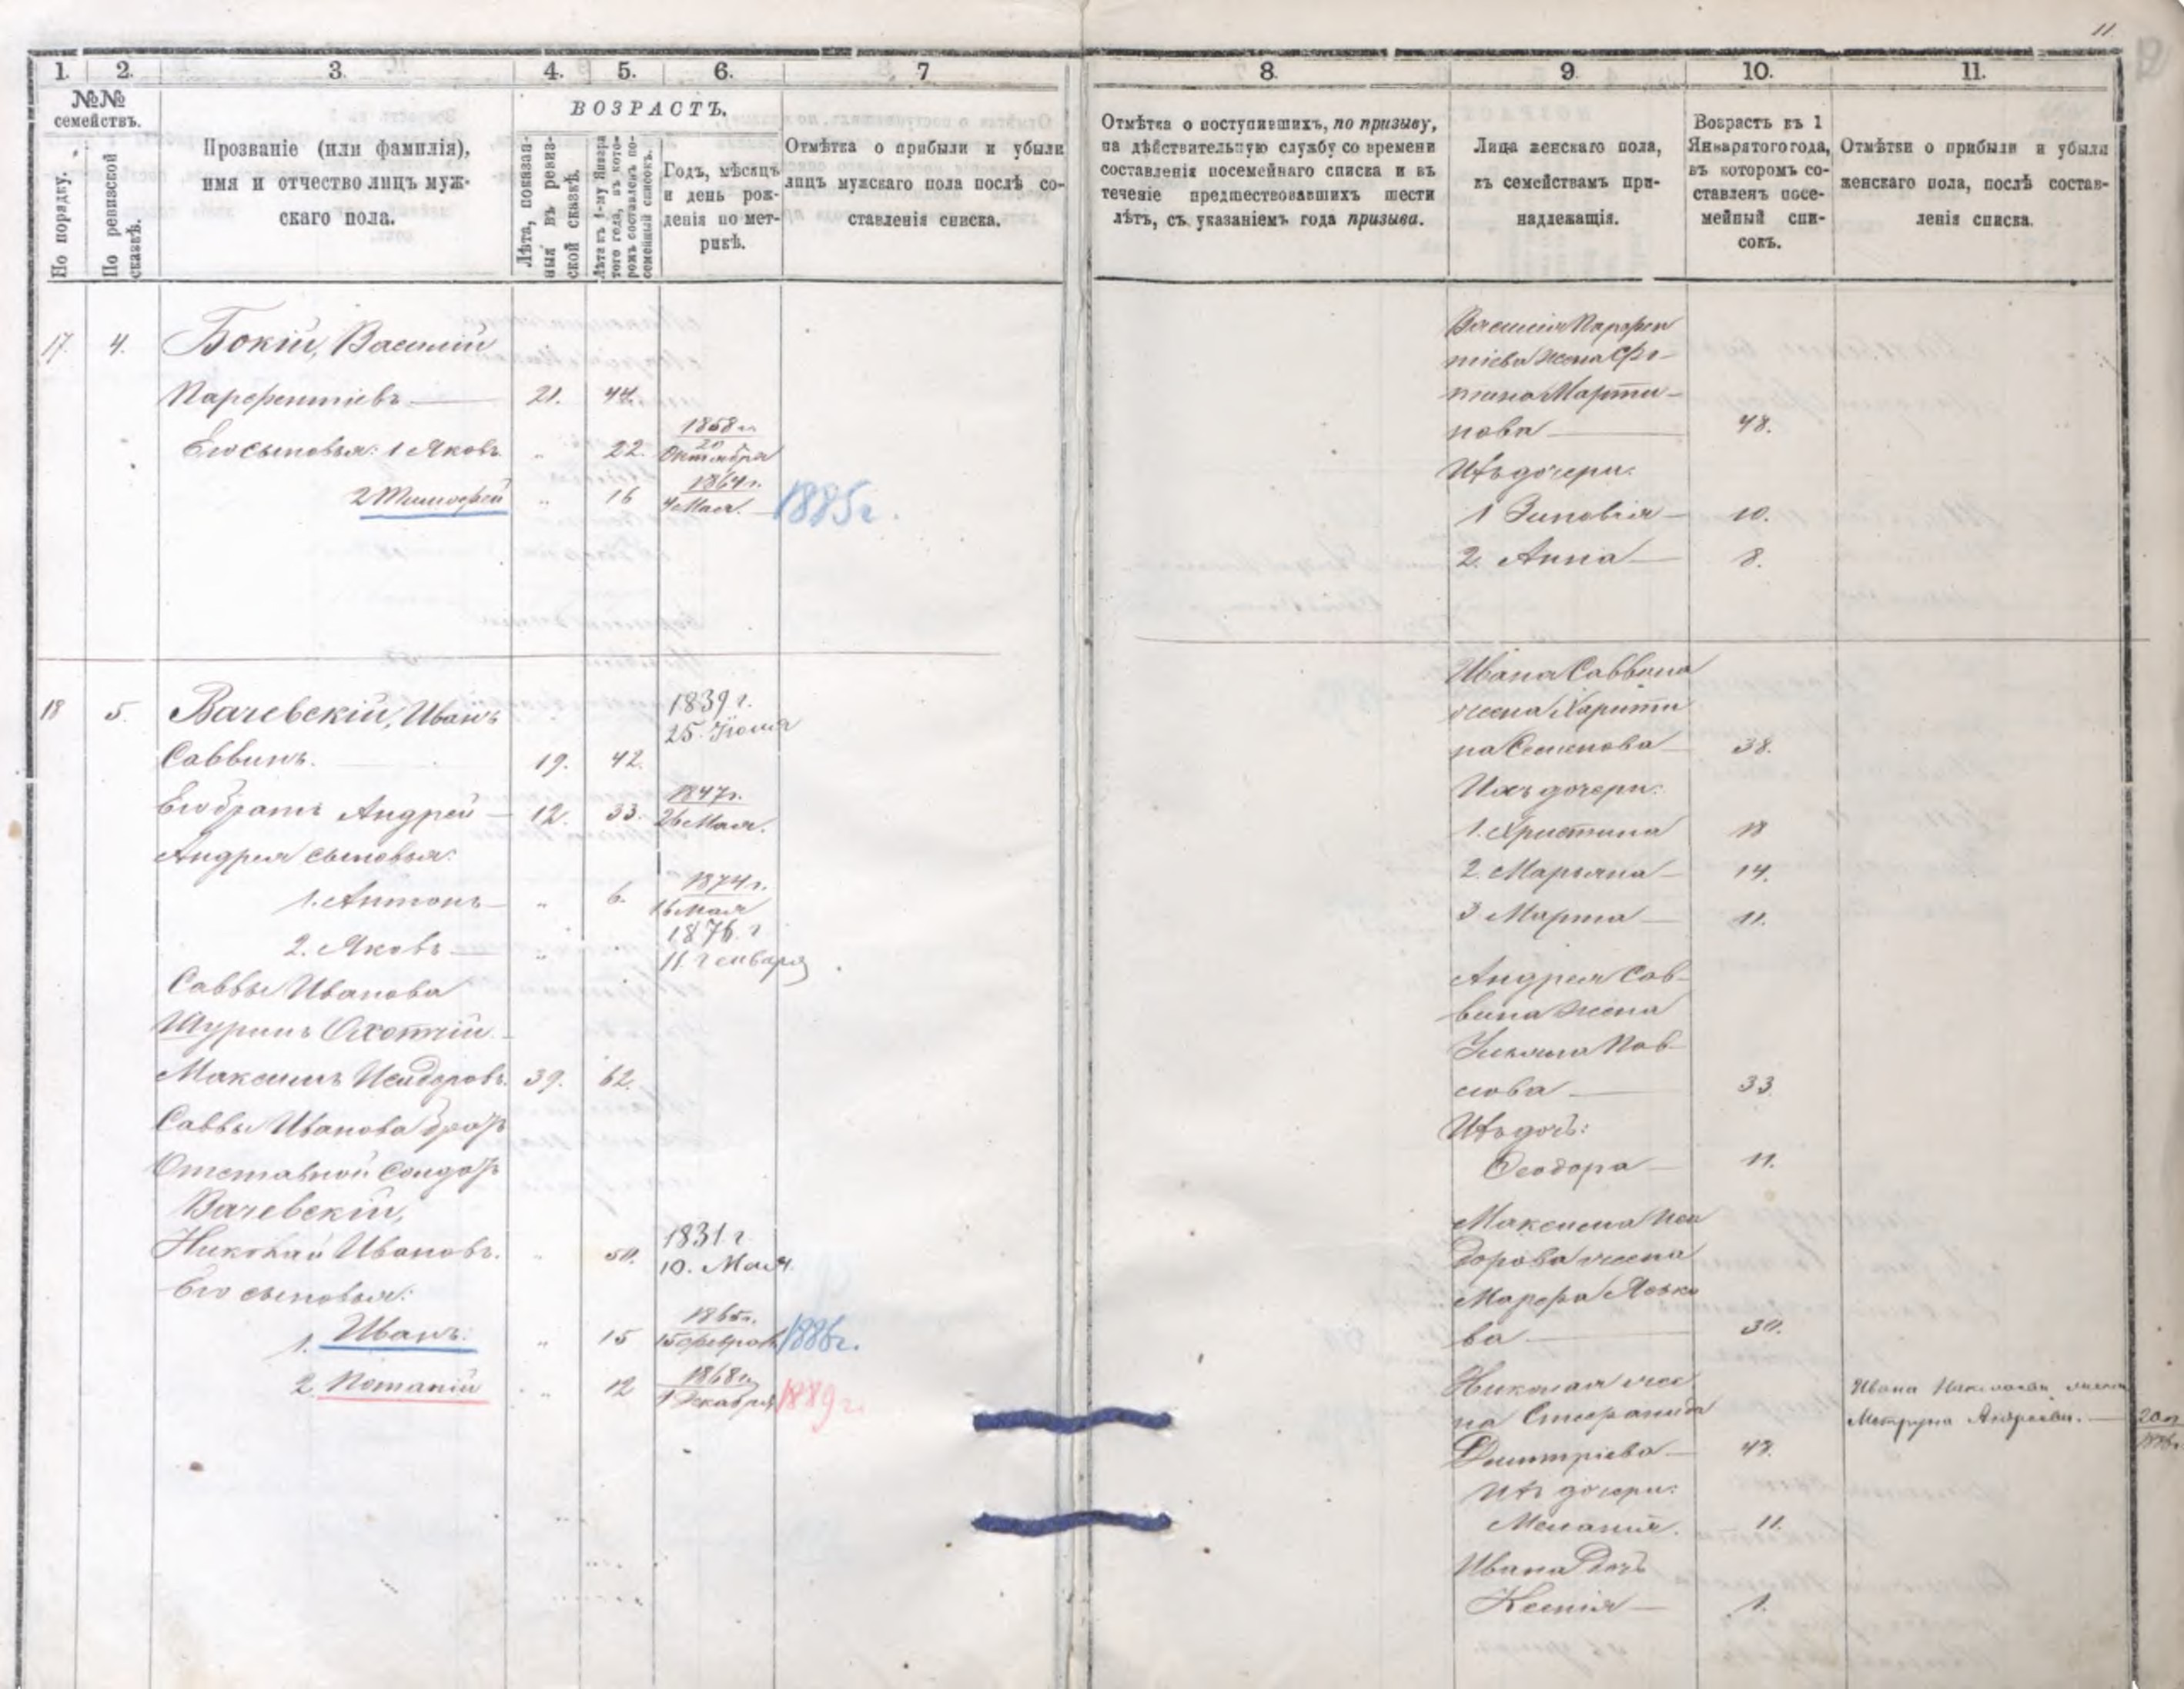 11
1. 2. 3. 4. 5. 6. 7
№№ семействъ.
По порядку.
По ревизской сказкѣ.
Прозваніе (или фамилія),
имя и отчество лицъ муж-
скаго пола.
ВОЗРАСТЪ.
Лѣта, показан-
ныя въ ревиз-
ской сказкѣ.
Лѣта къ 1-му Января
того года, въ кото-
ромъ составленъ по-
семейный списокъ.
Годъ, мѣсяцъ
и день рож-
денія по мет-
рикѣ.
Отмѣтка о прибыли и убыли
лицъ мужскаго пола послѣ со-
ставленія списка.
17. 4. Бокій, Василій
Парфентіевъ 21. 44.
Его сыновья: 1 Яковъ " 22. 1858 г. 20 Октября
2 Тимофей " 16 1864 г. 4 Мая. 1885 г.
18 5. Вачевскій, Иванъ 1839 г.
25. Іюня
Саввинъ. 19. 42.
Его братъ Андрей 12. 33. 1847 г. 26 Мая.
Андрея сыновья:
1. Антонъ " 6. 1874 г. 16 Мая
2. Яковъ " 1876. г
11. Генваря
Саввы Иванова
Шуринъ Охотній
Максимъ Исидоровъ. 39. 62.
Саввы Иванова братъ
Отставной Солдатъ
Вачевскій,
Николай Ивановъ. " 50. 1831 г
10. Мая.
Его сыновья:
1. Иванъ. " 15 1865 г. 15 Феврал 1886 г.
2. Потапій " 12 1868 г. 1 Декабря 1889 г.
8. 9. 10. 11.
Отмѣтка о поступившихъ, по призыву,
на дѣйствительную службу со времени
составленія посемейнаго списка и въ
теченіе предшествовавшихъ шести
лѣтъ, съ указаніемъ года призыва.
Лица женскаго пола,
къ семействамъ при-
надлежащія.
Возрастъ къ 1
Января того года,
въ которомъ со-
ставленъ посе-
мейный спи-
сокъ.
Отмѣтки о прибыли и убыли
женскаго пола, послѣ состав-
ленія списка.
Василія Парфен
тіева жена
Марти-
нова 48.
Ихъ дочери:
1 Зиновія 10.
2. Анна 8.
Ивана Саввина
жена Харити
на Семенова 38.
Ихъ дочери:
1. Христина 18
2. Марьяна 14.
3 Марта 11.
Андрея Сав-
вина жена
Пав-
лова 33
Ихъ дочь:
Ѳеодора 11.
Максима Иси
дорова жена
Марфа Яковле
ва 30.
Николая же
на Стефанида
Димитріева 48.
Ихъ дочери:
Меланія. 11.
Ивана Дочь
Ксенія 1.
Ивана Николаева жена
Мотруна Андреева. 20 л